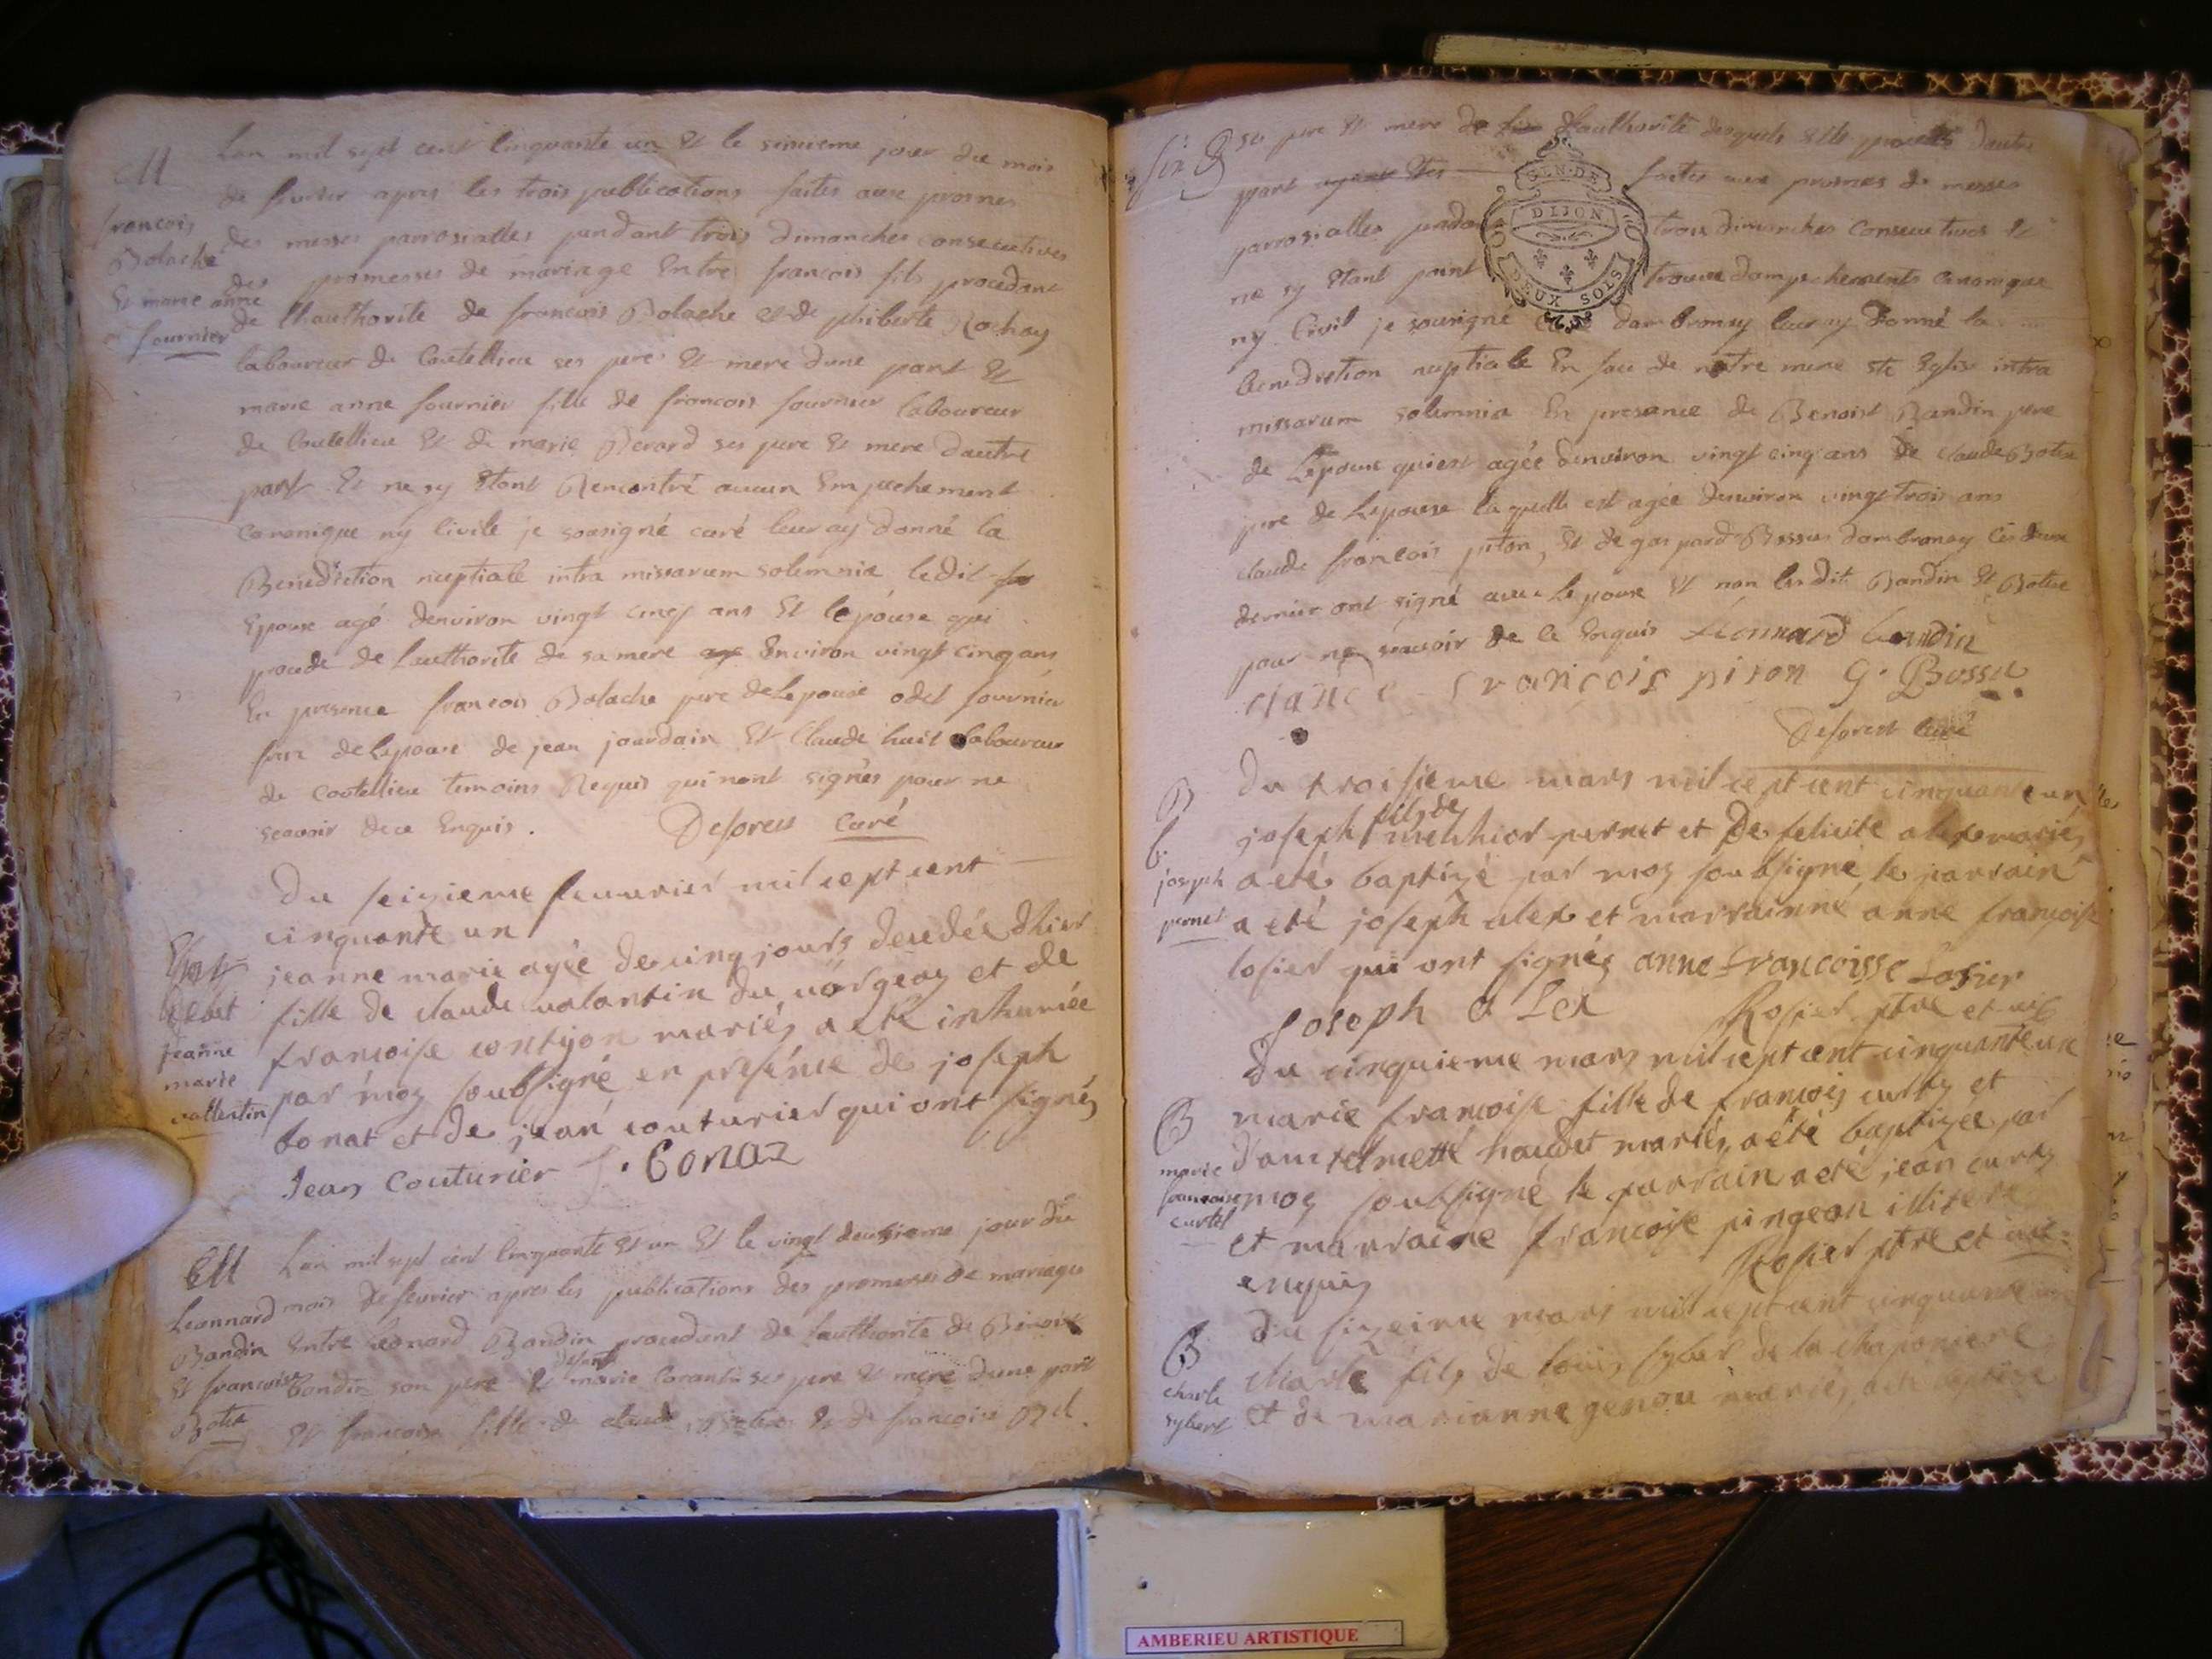 M
francois
Bolache
Et marie anne
fournier
Lan mil sept cent Cinquante un Et le sixieme jour du mois
de fevrier apres les trois publications faites aux prosnes
des messes parrosialles pendant trois dimanches consecutives
des promesses de mariage Entre francois fils procedant
de lhauthorité de francois Bolache et de philiberte Rochay
laboureur de Coutellieu ses pere Et mere dune part Et
marie anne fournier fille de francois fournier laboureur
de Coutellieu Et de marie Berard ses pere Et mere dautre
part Et ne sy Etant Rencontré aucun Empechement
Canonique ny Civile je sousigné curé leur ay donné la
Benediction nuptiale intra missarum solemnia ledit
Epoux agé denviron vingt cinq ans Et lepouse qui
procede de lauthorité de sa mere Environ vingt cinq ans
En presence francois Bolache pere de Lepoux odet fournier
de Lepouse de jean jourdain Et Claude huit laboureur
de Coutellieu temoins Requis qui nont signés pour ne
scavoir de ce Enquis . Deforest Curé
Jeanne
marie
vallentin
Du seizieme feuurier mil cept cent
cinquante un
jeanne marie agée de cinq jours decedée dhier
fille de claude valantin du vorgeay et de
francoise contyon mariés a eté inhumée
par moy soubsigné en presénce de joseph
bonat et de jean couturier qui ont signés
Jean Couturier J. Bonaz
M
Leonnard
Bandin
Et francoise
Botex
Lan mil sept cent Cinquante Et un Et le vingt deuxieme jour du
mois de fevrier apres les publications des promesses de mariage
Entre Leonard Bandin procedant de lauthorité de Benoist
Bandin son pere Et defunte marie ses pere Et mere dune part
Et francoise fille de claude Botex Et de francoise
ses pere Et mere de lauthorité desquels Elle procede dautre
part faites aux prosnes de messes
parrosialles pendant trois dimanches consecutives Et
ne sy Etant point trouve dampechements canonique
GEN DE
DIJON
DEUX SOLS
ny Civil je sousigné Curé dambronay leur ay Donné la
Benediction nuptiale En face de notre mere ste Eglise intra
missarum solemnia En presance de Benoist Bandin pere
de Lepoux qui est agée denviron vingt cinq ans de claude Botex
pere de Lepouse laquelle est agée denviron vingt trois ans
claude francois piton, Et de gaspard Bossu dambronay Ces deux
dernier ont signé avec Lepoux Et non lesdit Bandin Et Botex
pour ne scavoir de ce Enquis Léonnard bandin
clande francois piron G. Bossu
Deforest Curé
B
joseph
pernet
Du troisieme mars mil cept cent cinquante un
joseph fils de melchior pernet et De felicité alex mariés
a eté baptizé par moy soubsigné le parrain
a eté joseph alex et marrainne anne francoise
losier qui ont signés anne francoisse Losier
Joseph a Lex Rosier ptre et vic
B
marie
francoise
curtet
Du cinquieme mars mil cept cent cinquante un
marie francoise fille de francois curtet et
haudet mariés, a eté baptizée par
moy soubsigné le parrain a eté jean curtet
et marraine francoise pingeon illiteré
enquis Rosier ptre et vic
B
charle
sybert
du sixeime mars mil cept cent cinquante un
charle fils de louis syber de la chaponiere
et de marianne genou mariés, a eté baptizé
AMBERIEU ARTISTIQUE